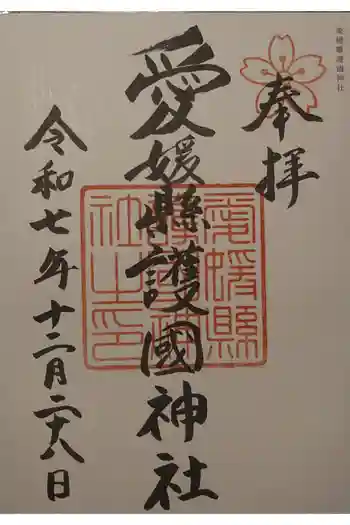 愛媛縣護國神社
奉拝
愛媛縣護國神社
愛媛縣護國神社之印
令和七年十二月二十八日